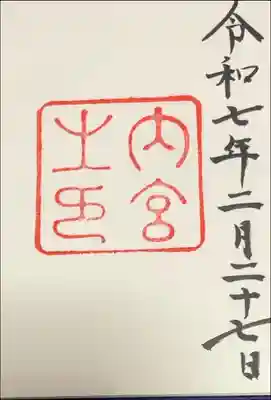 令和七年二月二十七日
内宮
之印